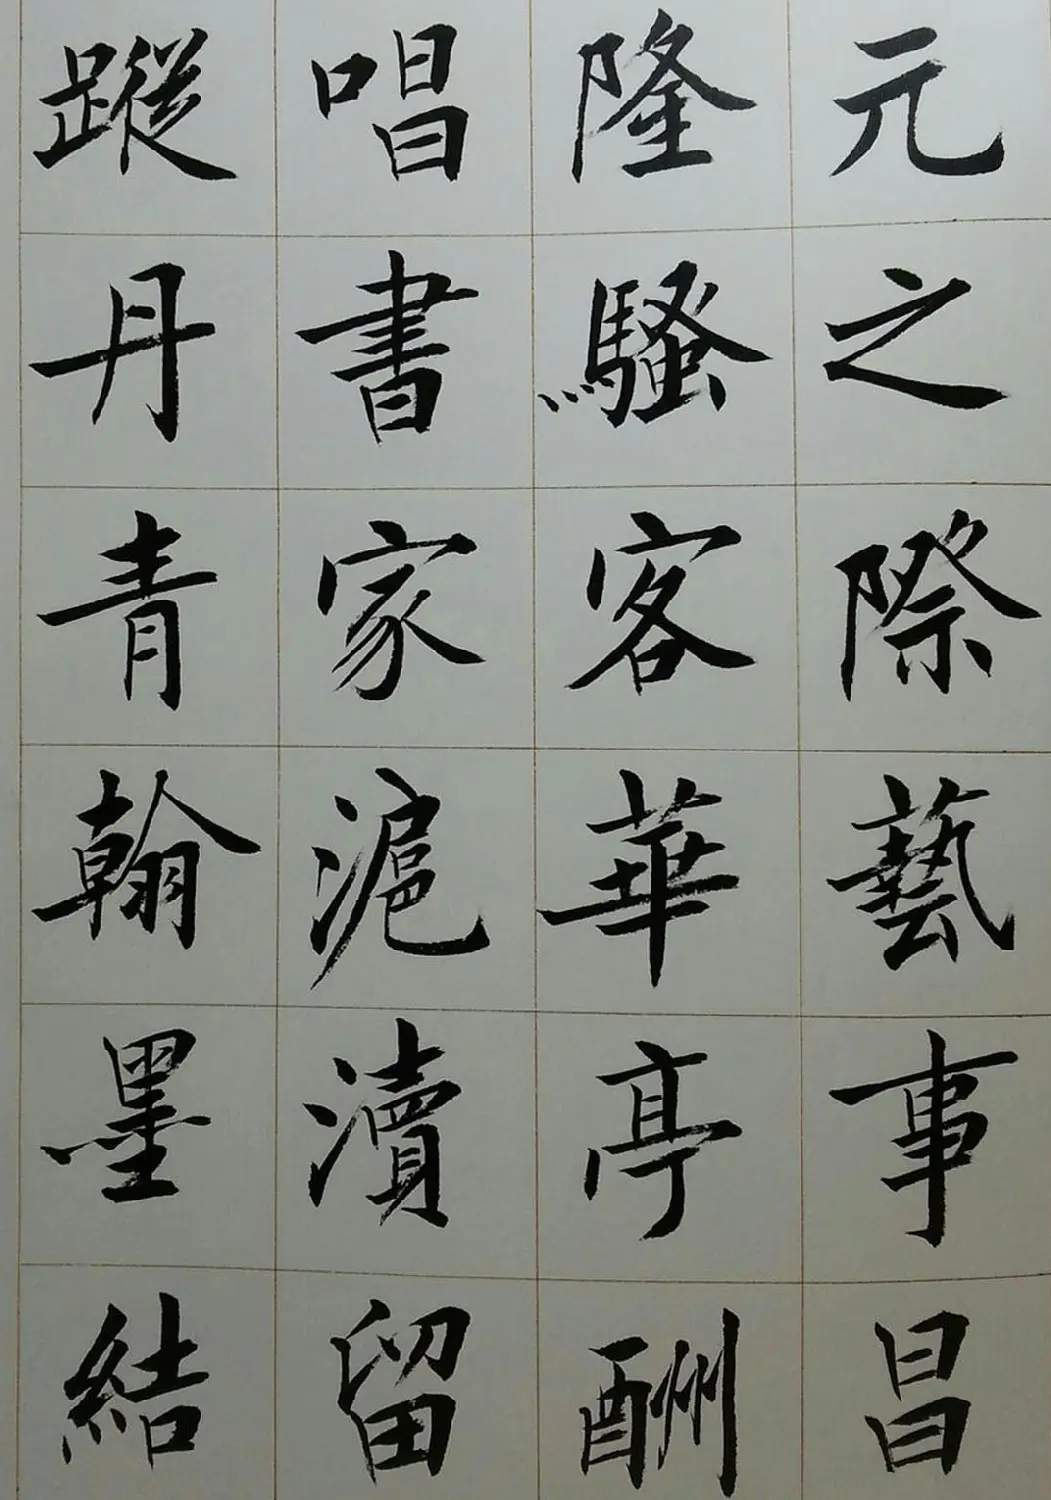 元之際藝事昌
隆騷客華亭酬
唱書家滬瀆留
蹤丹青翰墨結